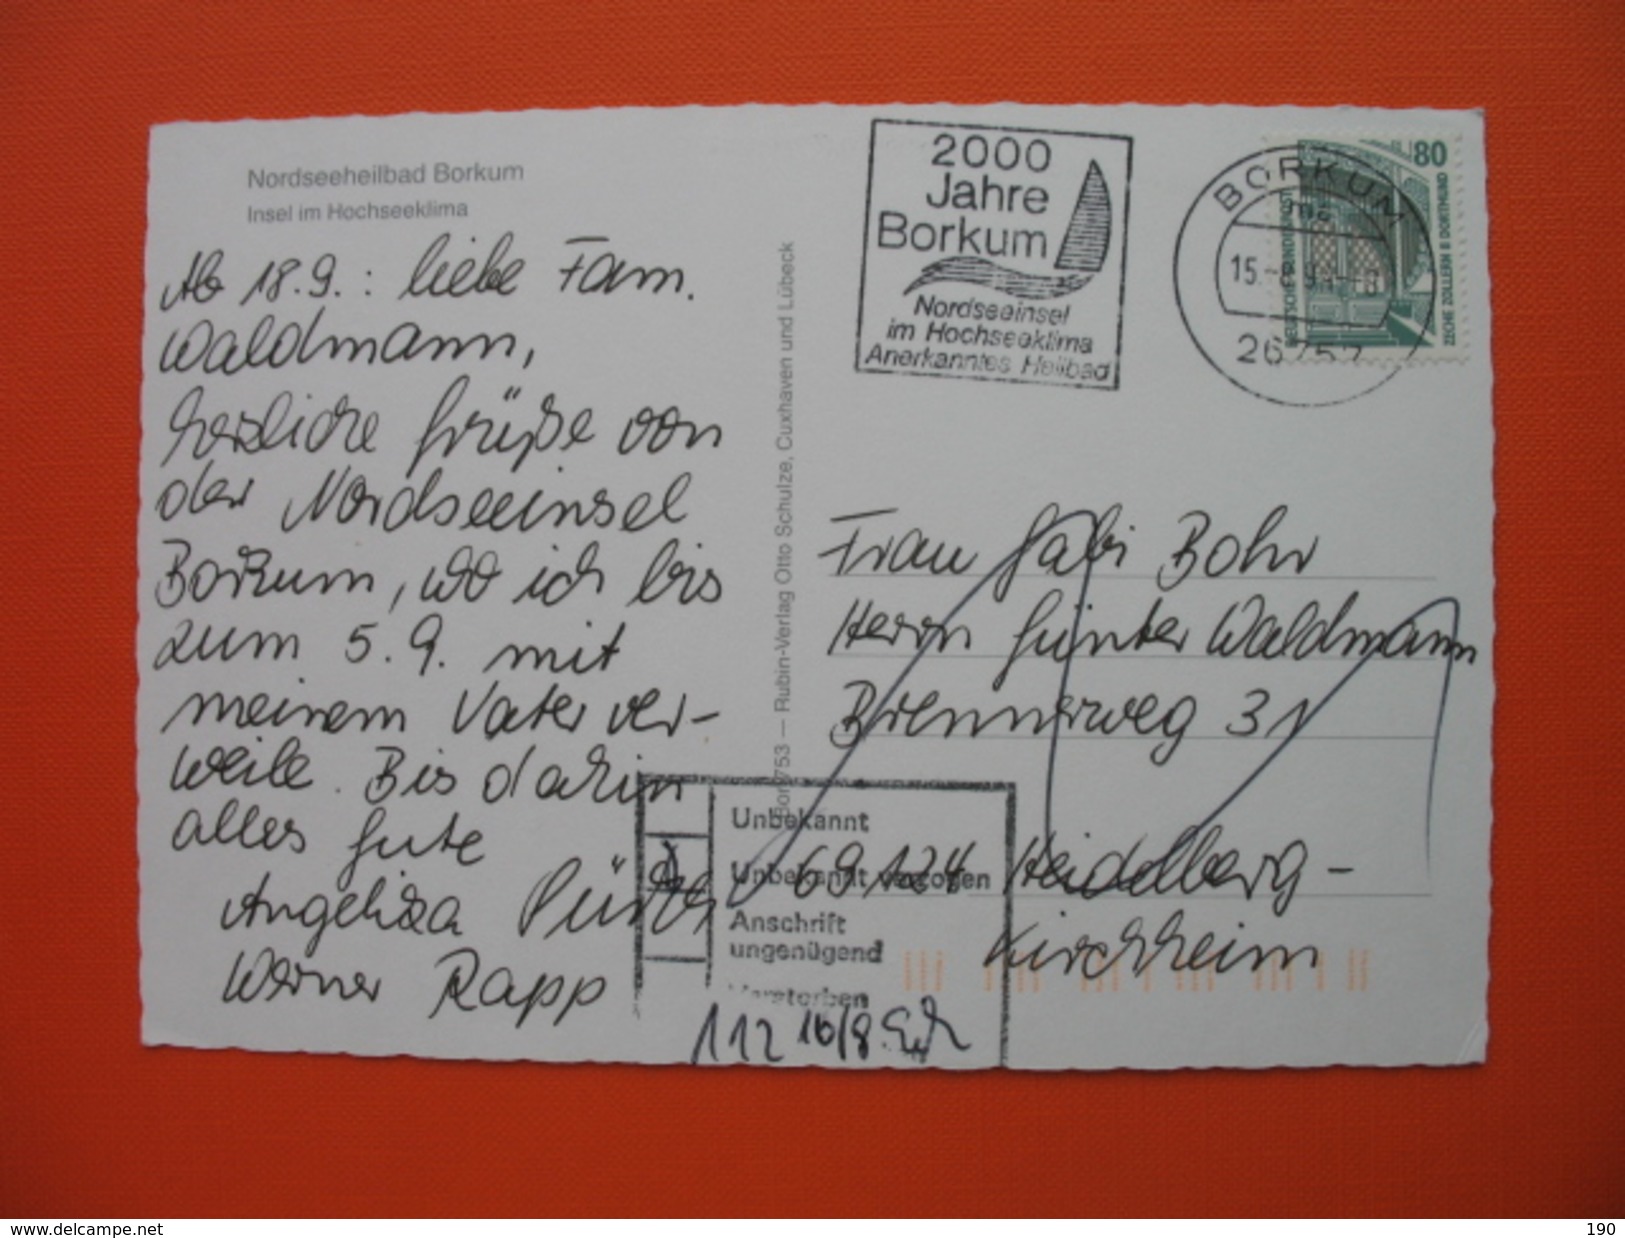 Nordseeheilbad Borkum
Insel im Hochseeklima
Ab 18.9.: liebe Fam.
Waldmann,
herzliche Grüße von
der Nordseeinsel
Borkum, wo ich bis
zum 5.9. mit
meinem Vater ver-
weile. Bis dahin
alles Gute
Angelika
Werner Rapp
Bor 753 — Rubin-Verlag Otto Schulze, Cuxhaven und Lübeck
2000
Jahre
Borkum
Nordseeinsel
im Hochseeklima
Anerkanntes Heilbad
BORKUM
15.
26757
80
DEUTSCHE BUNDESPOST
ZECHE ZOLLERN II DORTMUND
Frau Gabi Bohr
Herrn Günter Waldmann
Brennerweg 31
69124 Heidelberg-
Kirchheim
Unbekannt
Unbekannt verzogen
Anschrift
ungenügend
Verstorben
112 16/8.
www.delcampe.net
190